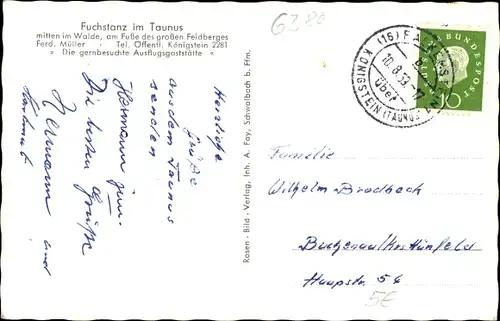 Fuchstanz im Taunus
mitten im Walde, am Fuße des großen Feldberges
Ferd. Müller - Tel. Öffentl. Königstein 2281
» Die gernbesuchte Ausflugsgaststätte «
6380
Herzliche
Grüße
aus dem Taunus
senden
Hermann jun.
Die besten Grüße
Hermann und
Rosen-Bild-Verlag, Inh. A. Fay, Schwalbach b. Ffm.
(16)
10.8.59
über
KÖNIGSTEIN (TAUNUS)
DEUTSCHE BUNDESPOST
10
Familie
Wilhelm Brodbach
Buchenau/Krs Hünfeld
Haupstr. 54
5€